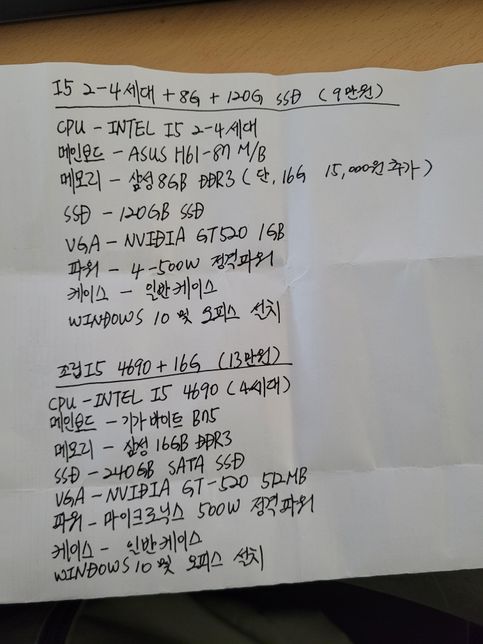 I5 2-4세대 + 8G + 120G SSD (9만원)
CPU - INTEL I5 2-4세대
메인보드 - ASUS H61-87 M/B
메모리 - 삼성 8GB DDR3 (단, 16G 15,000원 추가)
SSD - 120GB SSD
VGA - NVIDIA GT520 1GB
파워 - 4-500W 정격파워
케이스 - 일반케이스
WINDOWS 10 및 오피스 설치
조립 I5 4690 + 16G (13만원)
CPU - INTEL I5 4690 (4세대)
메인보드 - 기가바이트 B75
메모리 - 삼성 16GB DDR3
SSD - 240GB SATA SSD
VGA - NVIDIA GT-520 512MB
파워 - 마이크로닉스 500W 정격파워
케이스 - 일반케이스
WINDOWS 10 및 오피스 설치